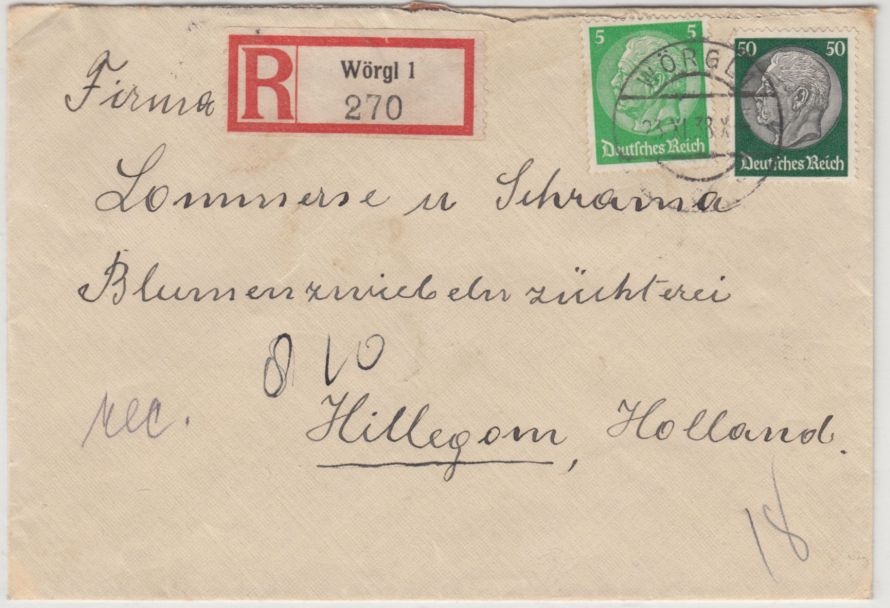 Firma
R Wörgl 1
270
5 5
Deutsches Reich
50 50
Deutsches Reich
WÖRGL
Lommerse u Schrama
Blumenzwiebelnzüchterei
810
rec.
Hillegom, Holland.
18